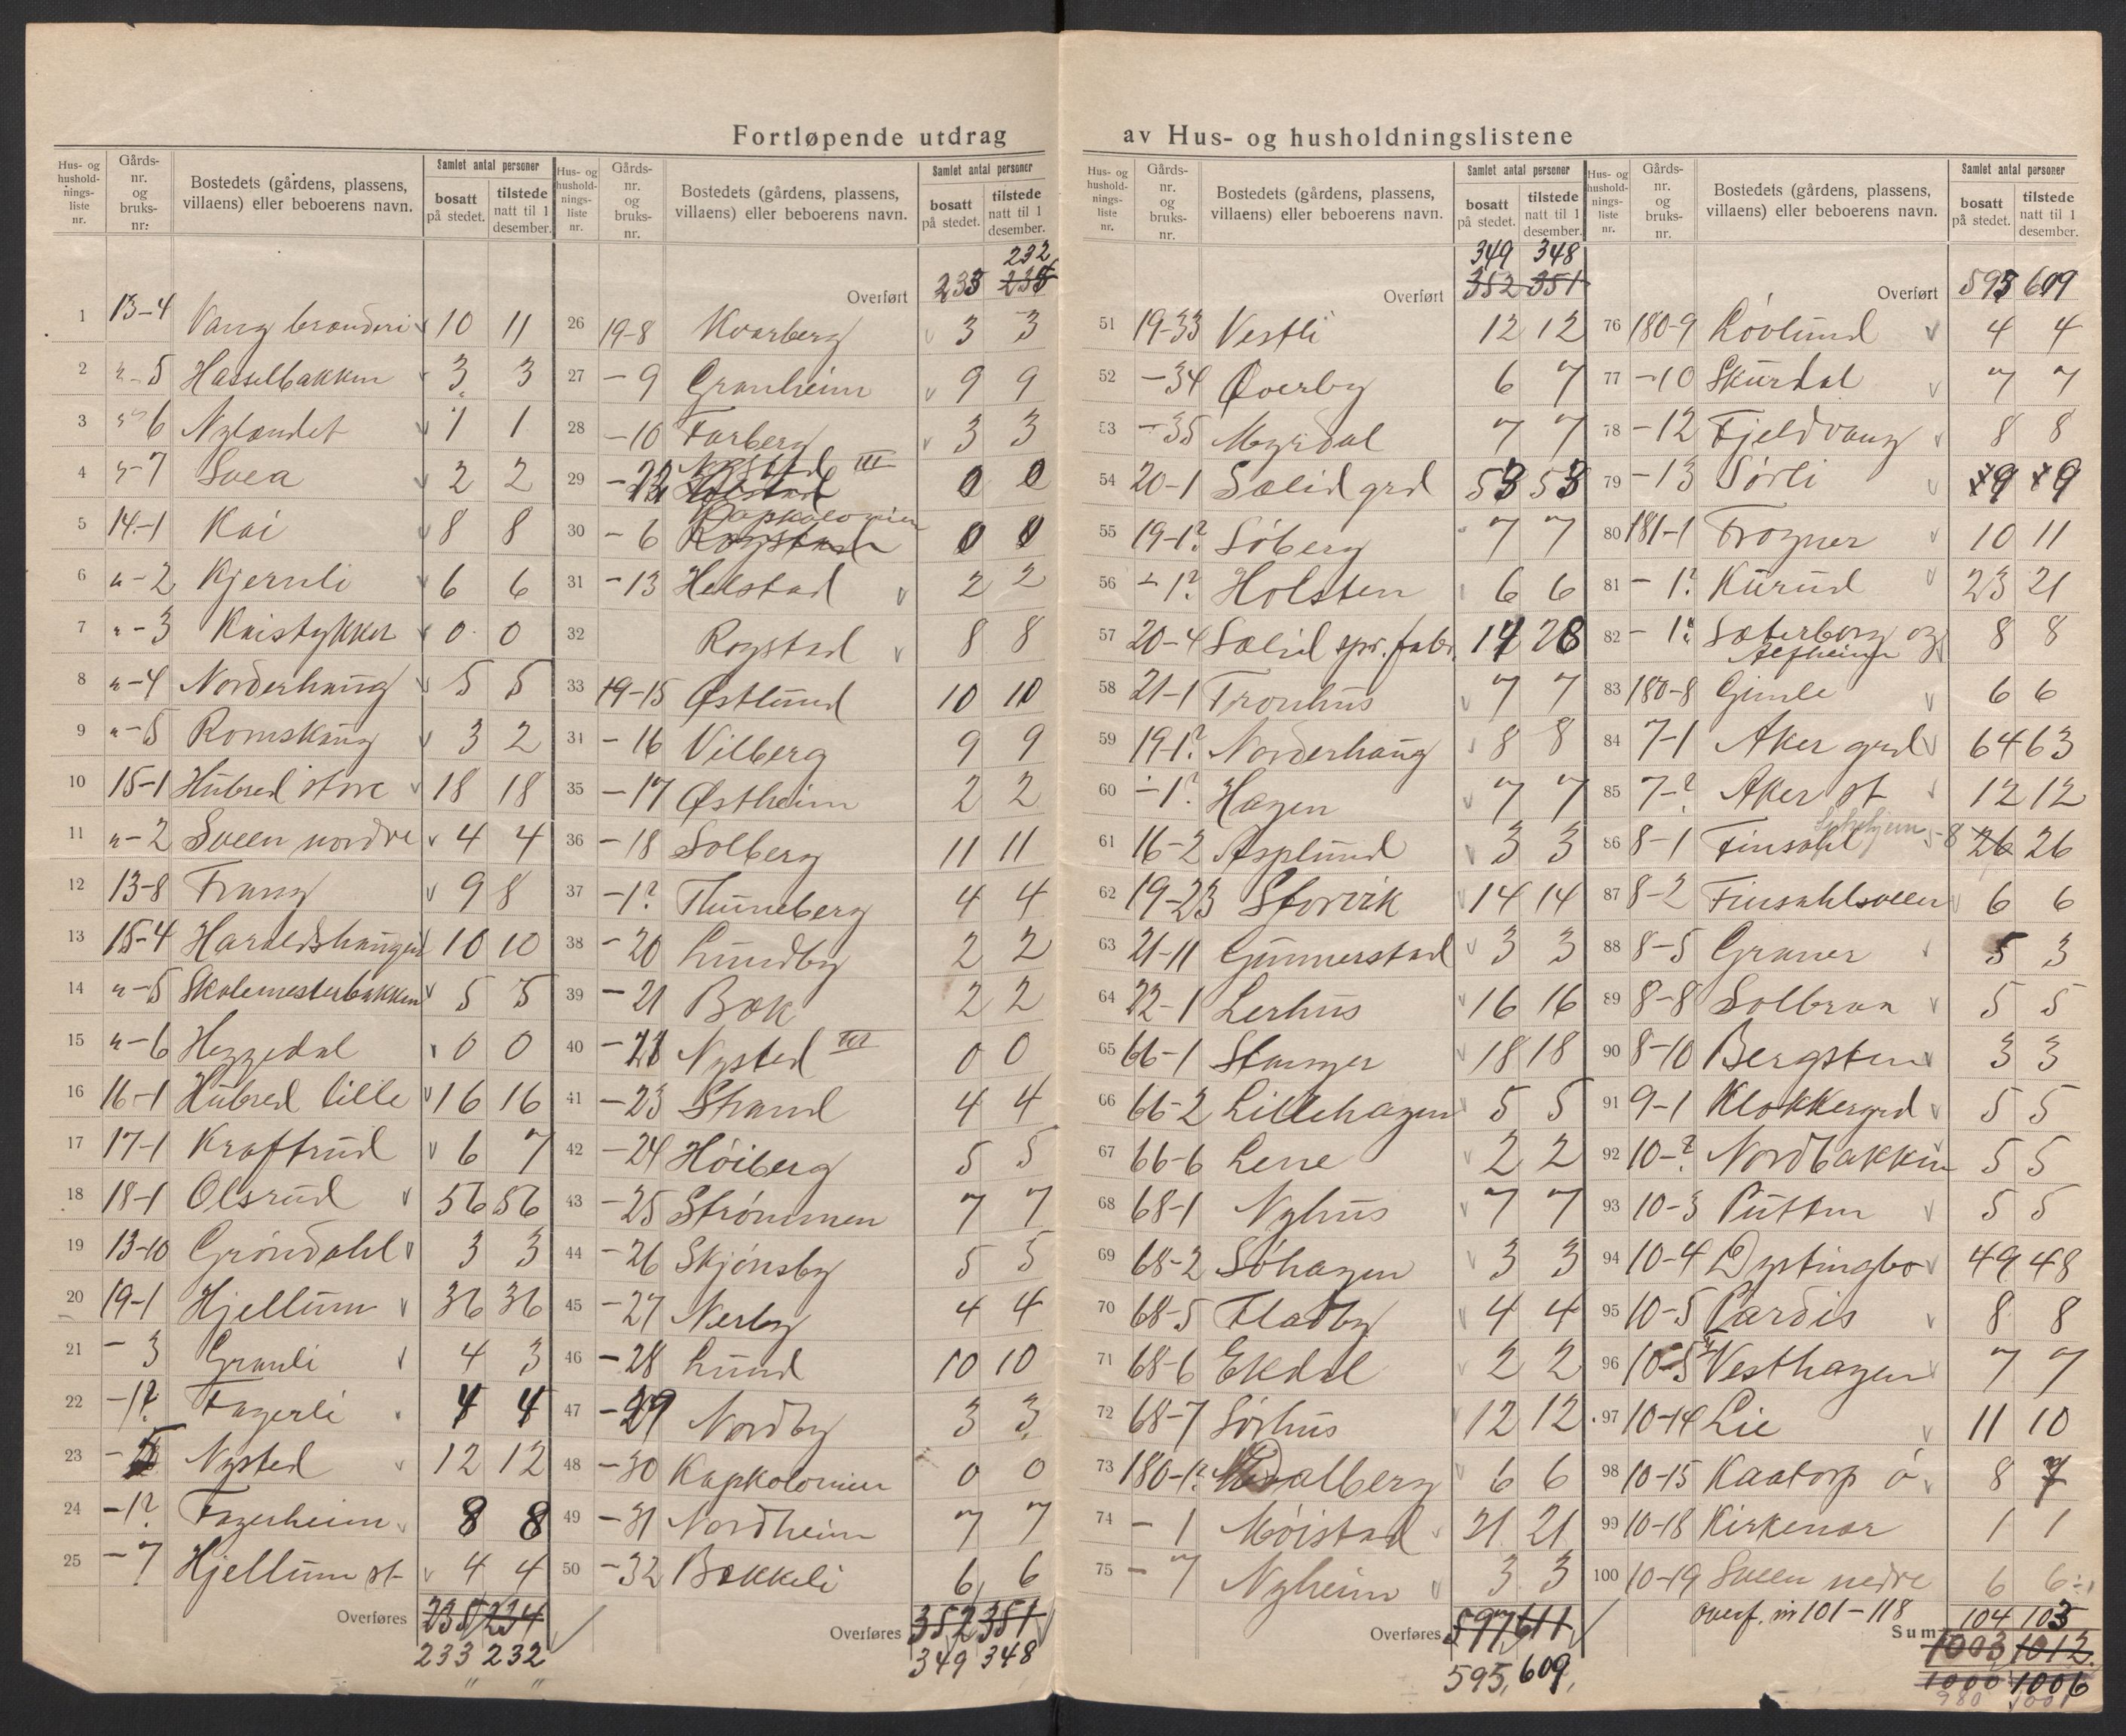 Fortløpende utdrag av Hus- og husholdningslistene
Hus- og hushold-nings-liste nr. Gårds-nr. og bruks-nr. Bostedets (gårdens, plassens, villaens) eller beboerens navn. Samlet antal personer bosatt på stedet. tilstede natt til 1 desember.
1 13-4 Vang brænderi 10 11
2 "-5 Hasselbakken 3 3
3 "-6 Nylændet 1 1
4 "-7 Svea 2 2
5 14-1 Kai 8 8
6 "-2 Kjernli 6 6
7 "-3 Kaistykker 0 0
8 "-4 Norderhaug 5 5
9 "-5 Romskaug 3 2
10 15-1 Hubred store 18 18
11 "-2 Sveen nordre 4 4
12 13-8 Frang 9 8
13 15-4 Haraldshaugen 10 10
14 "-5 Skolemesterbakken 5 5
15 "-6 Heggedal 0 0
16 16-1 Hubred lille 16 16
17 17-1 Kraftrud 6 7
18 18-1 Olsrud 56 56
19 13-10 Grøndahl 3 3
20 19-1 Hjellum 36 36
21 -3 Granli 4 3
22 -1? Fagerli 4 4
23 Nysted 12 12
24 -1? Fagerheim 8 8
25 -7 Hjellum st. 4 4
Overføres 235 234
233 232
Hus- og hushold-nings-liste nr. Gårds-nr. og bruks-nr. Bostedets (gårdens, plassens, villaens) eller beboerens navn. Samlet antal personer bosatt på stedet. tilstede natt til 1 desember.
232
Overført 233 234
26 19-8 Kvarberg 3 3
27 -9 Granheim 9 9
28 -10 Farberg 3 3
29 Nysted III 0 0
30 -6 Kapkolonien Rogstad 0 0
31 -13 Helstad 2 2
32 Rogstad 8 8
33 19-15 Østlund 10 10
34 -16 Vilberg 9 9
35 -17 Østheim 2 2
36 -18 Solberg 11 11
37 -1? Thuneberg 4 4
38 -20 Lundby 2 2
39 -21 Bæk 2 2
40 Nysted III 0 0
41 -23 Strand 4 4
42 -24 Høiberg 5 5
43 -25 Strømmen 7 7
44 -26 Skjønsby 5 5
45 -27 Nerby 4 4
46 -28 Lund 10 10
47 -29 Nordby 3 3
48 -30 Kapkolonien 0 0
49 -31 Nordheim 7 7
50 -32 Bækkeli 6 6
Overføres 352 351
349 348
Hus- og hushold-nings-liste nr. Gårds-nr. og bruks-nr. Bostedets (gårdens, plassens, villaens) eller beboerens navn. Samlet antal personer bosatt på stedet. tilstede natt til 1 desember.
349 348
Overført 352 351
51 19-33 Vestli 12 12
52 -34 Øverby 6 7
53 -35 Myrdal 7 7
54 20-1 Sælid grd 53 53
55 19-1? Søberg 7 7
56 -1? Holsten 6 6
57 20-4 Sælid spr. fabr. 14 28
58 21-1 Tronhus 7 7
59 19-1? Norderhaug 8 8
60 -1? Hagen 7 7
61 16-2 Asplund 3 3
62 19-23 Storvik 14 14
63 21-11 Gunnerstad 3 3
64 22-1 Lerhus 16 16
65 66-1 Stanger 18 18
66 66-2 Lillehagen 5 5
67 66-6 Lene 2 2
68 68-1 Nyhus 7 7
69 68-2 Søhagen 3 3
70 68-5 Fladby 4 4
71 68-6 Ekdal 2 2
72 68-7 Sørhus 12 12
73 180-1? 6 6
74 -1 Møistad 21 21
75 -7 Nyheim 3 3
Overføres 597 611
595, 609,
Hus- og hushold-nings-liste nr. Gårds-nr. og bruks-nr. Bostedets (gårdens, plassens, villaens) eller beboerens navn. Samlet antal personer bosatt på stedet. tilstede natt til 1 desember.
Overført 595 609
76 180-9 Løvlund 4 4
77 -10 Skurdal 7 7
78 -12 Fjeldvang 8 8
79 -13 Sørli 9 9
80 181-1 Frogner 10 11
81 -1? Kurud 23 21
82 -1? Sæterberg og Alfheim 8 8
83 180-8 Gimle 6 6
84 7-1 Aker grd 64 63
85 7-? Aker st 12 12
86 8-1 Finsahl 26 26
87 8-2 Finsahlsveen 6 6
88 8-5 Graner 5 3
89 8-8 Solbraa 5 5
90 8-10 Bergsten 3 3
91 9-1 Klokkergrd 5 5
92 10-? Nordbakken 5 5
93 10-3 Putten 5 5
94 10-4 Dystingbo 49 48
95 10-5 Pardis 8 8
96 10-5 Vesthagen 7 7
97 10-14 Lie 11 10
98 10-15 Kaatorp ø. 8 7
99 10-18 Kirkenær 1 1
100 10-19 Sveen nedre 6 6
overf. nr 101-118 104 103
Sum 1003 1012
1000 1006
980 1001